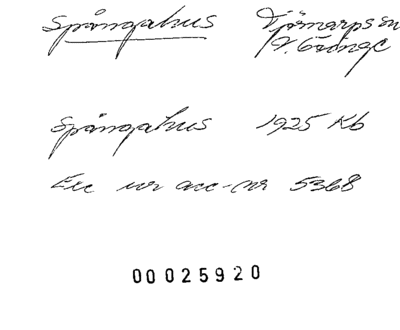 Spångahus Tjörnarps sn
V. Göinge
Spångahus 1925 Kb
Exc ur acc-nr 5368
00025920